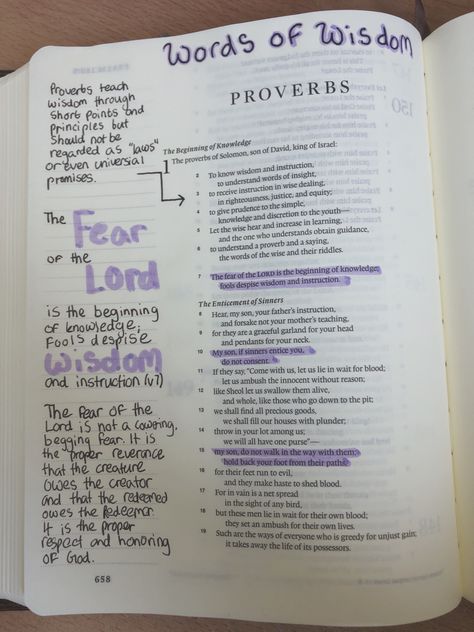 Words of Wisdom
PROVERBS
Proverbs teach
wisdom through
short points and
principles but
should not be
regarded as "laws"
or even universal
promises.
The
Fear
OF the
Lord
is the beginning
of knowledge;
Fools despise
wisdom
and instruction (v7)
The Fear of the
Lord is not a cowering,
begging fear. It is
the proper reverance
that the creature
owes the creator
and that the redeemed
owes the Redeemer.
It is the proper
respect and honoring
OF God.
658
The Beginning of Knowledge
1 The proverbs of Solomon, son of David, king of Israel:
2 To know wisdom and instruction,
to understand words of insight,
3 to receive instruction in wise dealing,
in righteousness, justice, and equity;
4 to give prudence to the simple,
knowledge and discretion to the youth—
5 Let the wise hear and increase in learning,
and the one who understands obtain guidance,
6 to understand a proverb and a saying,
the words of the wise and their riddles.
7 The fear of the LORD is the beginning of knowledge;
fools despise wisdom and instruction.
The Enticement of Sinners
8 Hear, my son, your father's instruction,
and forsake not your mother's teaching,
9 for they are a graceful garland for your head
and pendants for your neck.
10 My son, if sinners entice you,
do not consent.
11 If they say, "Come with us, let us lie in wait for blood;
let us ambush the innocent without reason;
12 like Sheol let us swallow them alive,
and whole, like those who go down to the pit;
13 we shall find all precious goods,
we shall fill our houses with plunder;
14 throw in your lot among us;
we will all have one purse"—
15 my son, do not walk in the way with them;
hold back your foot from their paths,
16 for their feet run to evil,
and they make haste to shed blood.
17 For in vain is a net spread
in the sight of any bird,
18 but these men lie in wait for their own blood;
they set an ambush for their own lives.
19 Such are the ways of everyone who is greedy for unjust gain;
it takes away the life of its possessors.